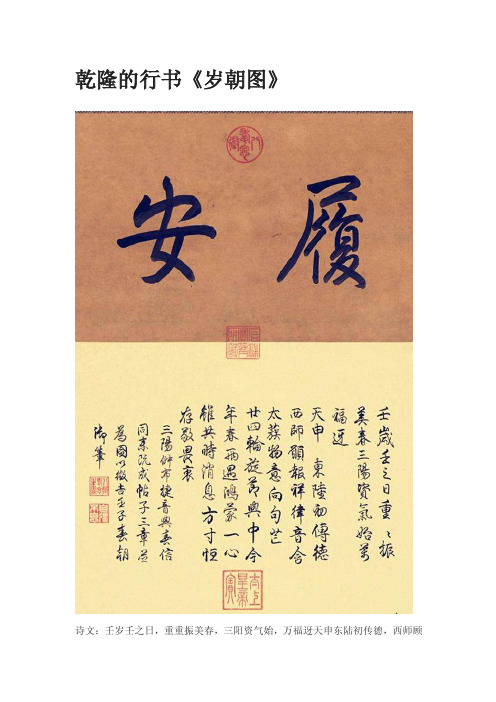 乾隆的行书《岁朝图》
履安
壬歲壬之日重〻振
美春三陽資氣始萬
福迓
天申 東陸初傳德
西師願報祥律音含
太蔟物意向句芒
廿四輪旋節與中今
年春遇鴻蒙一心
共時消息方寸恒
存敬畏衷
三陽布捷音與春信
同來既成帖子三章並
為圖以徵吉壬子春朝
御筆
诗文：壬岁壬之日，重重振美春，三阳资气始，万福迓天申东陆初传德，西师顾